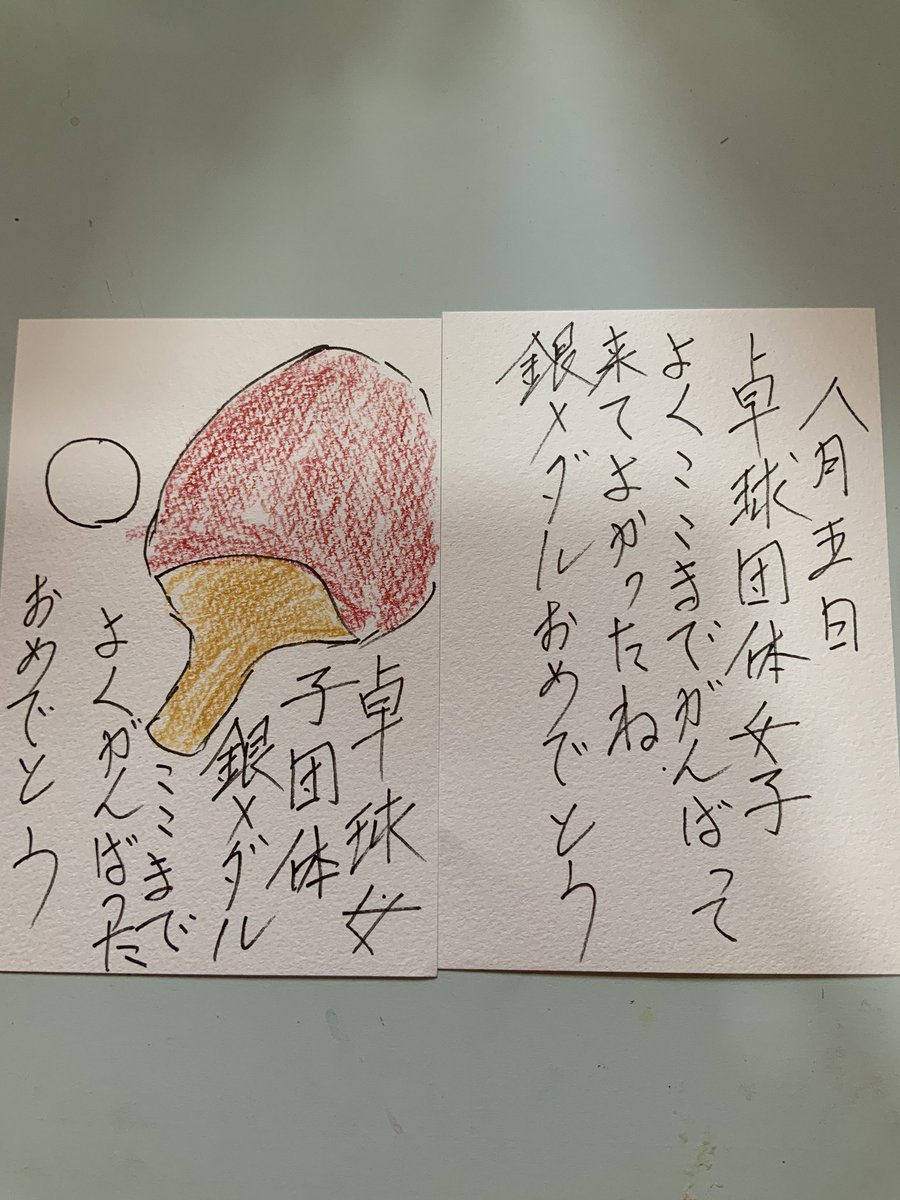 八月五日
卓球団体女子
よくここまでがんばって
来てよかったね
銀メダルおめでとう
卓球女
子団体
銀メダル
ここまで
よくがんばった
おめでとう